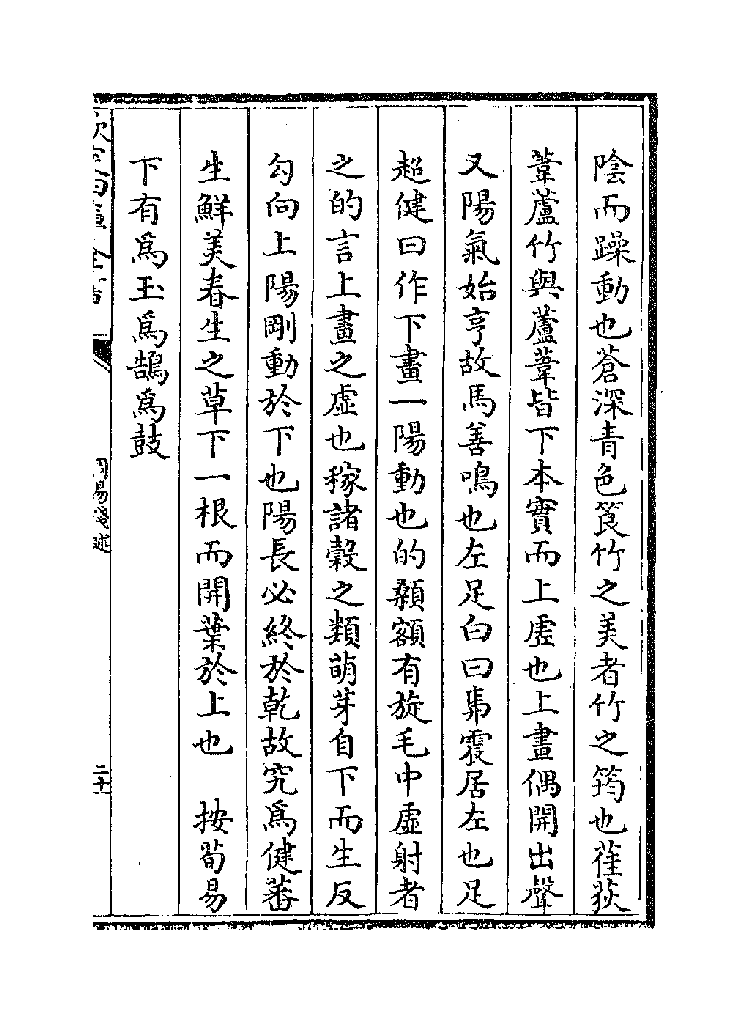 陰而躁動也蒼深青色筤竹之美者竹之筠也萑荻
葦蘆竹與蘆葦皆下本實而上虛也上畫偶開出聲
又陽氣始亨故馬善鳴也左足白曰馵震居左也足
超健曰作下畫一陽動也的顙額有旋毛中虛射者
之的言上畫之虛也稼諸穀之類萌芽自下而生反
勾向上陽剛動於下也陽長必終於乾故究爲健蕃
生鮮美春生之草下一根而開葉於上也　按荀易
下有爲玉爲鵠爲鼓
欽定四庫全書
周易淺述